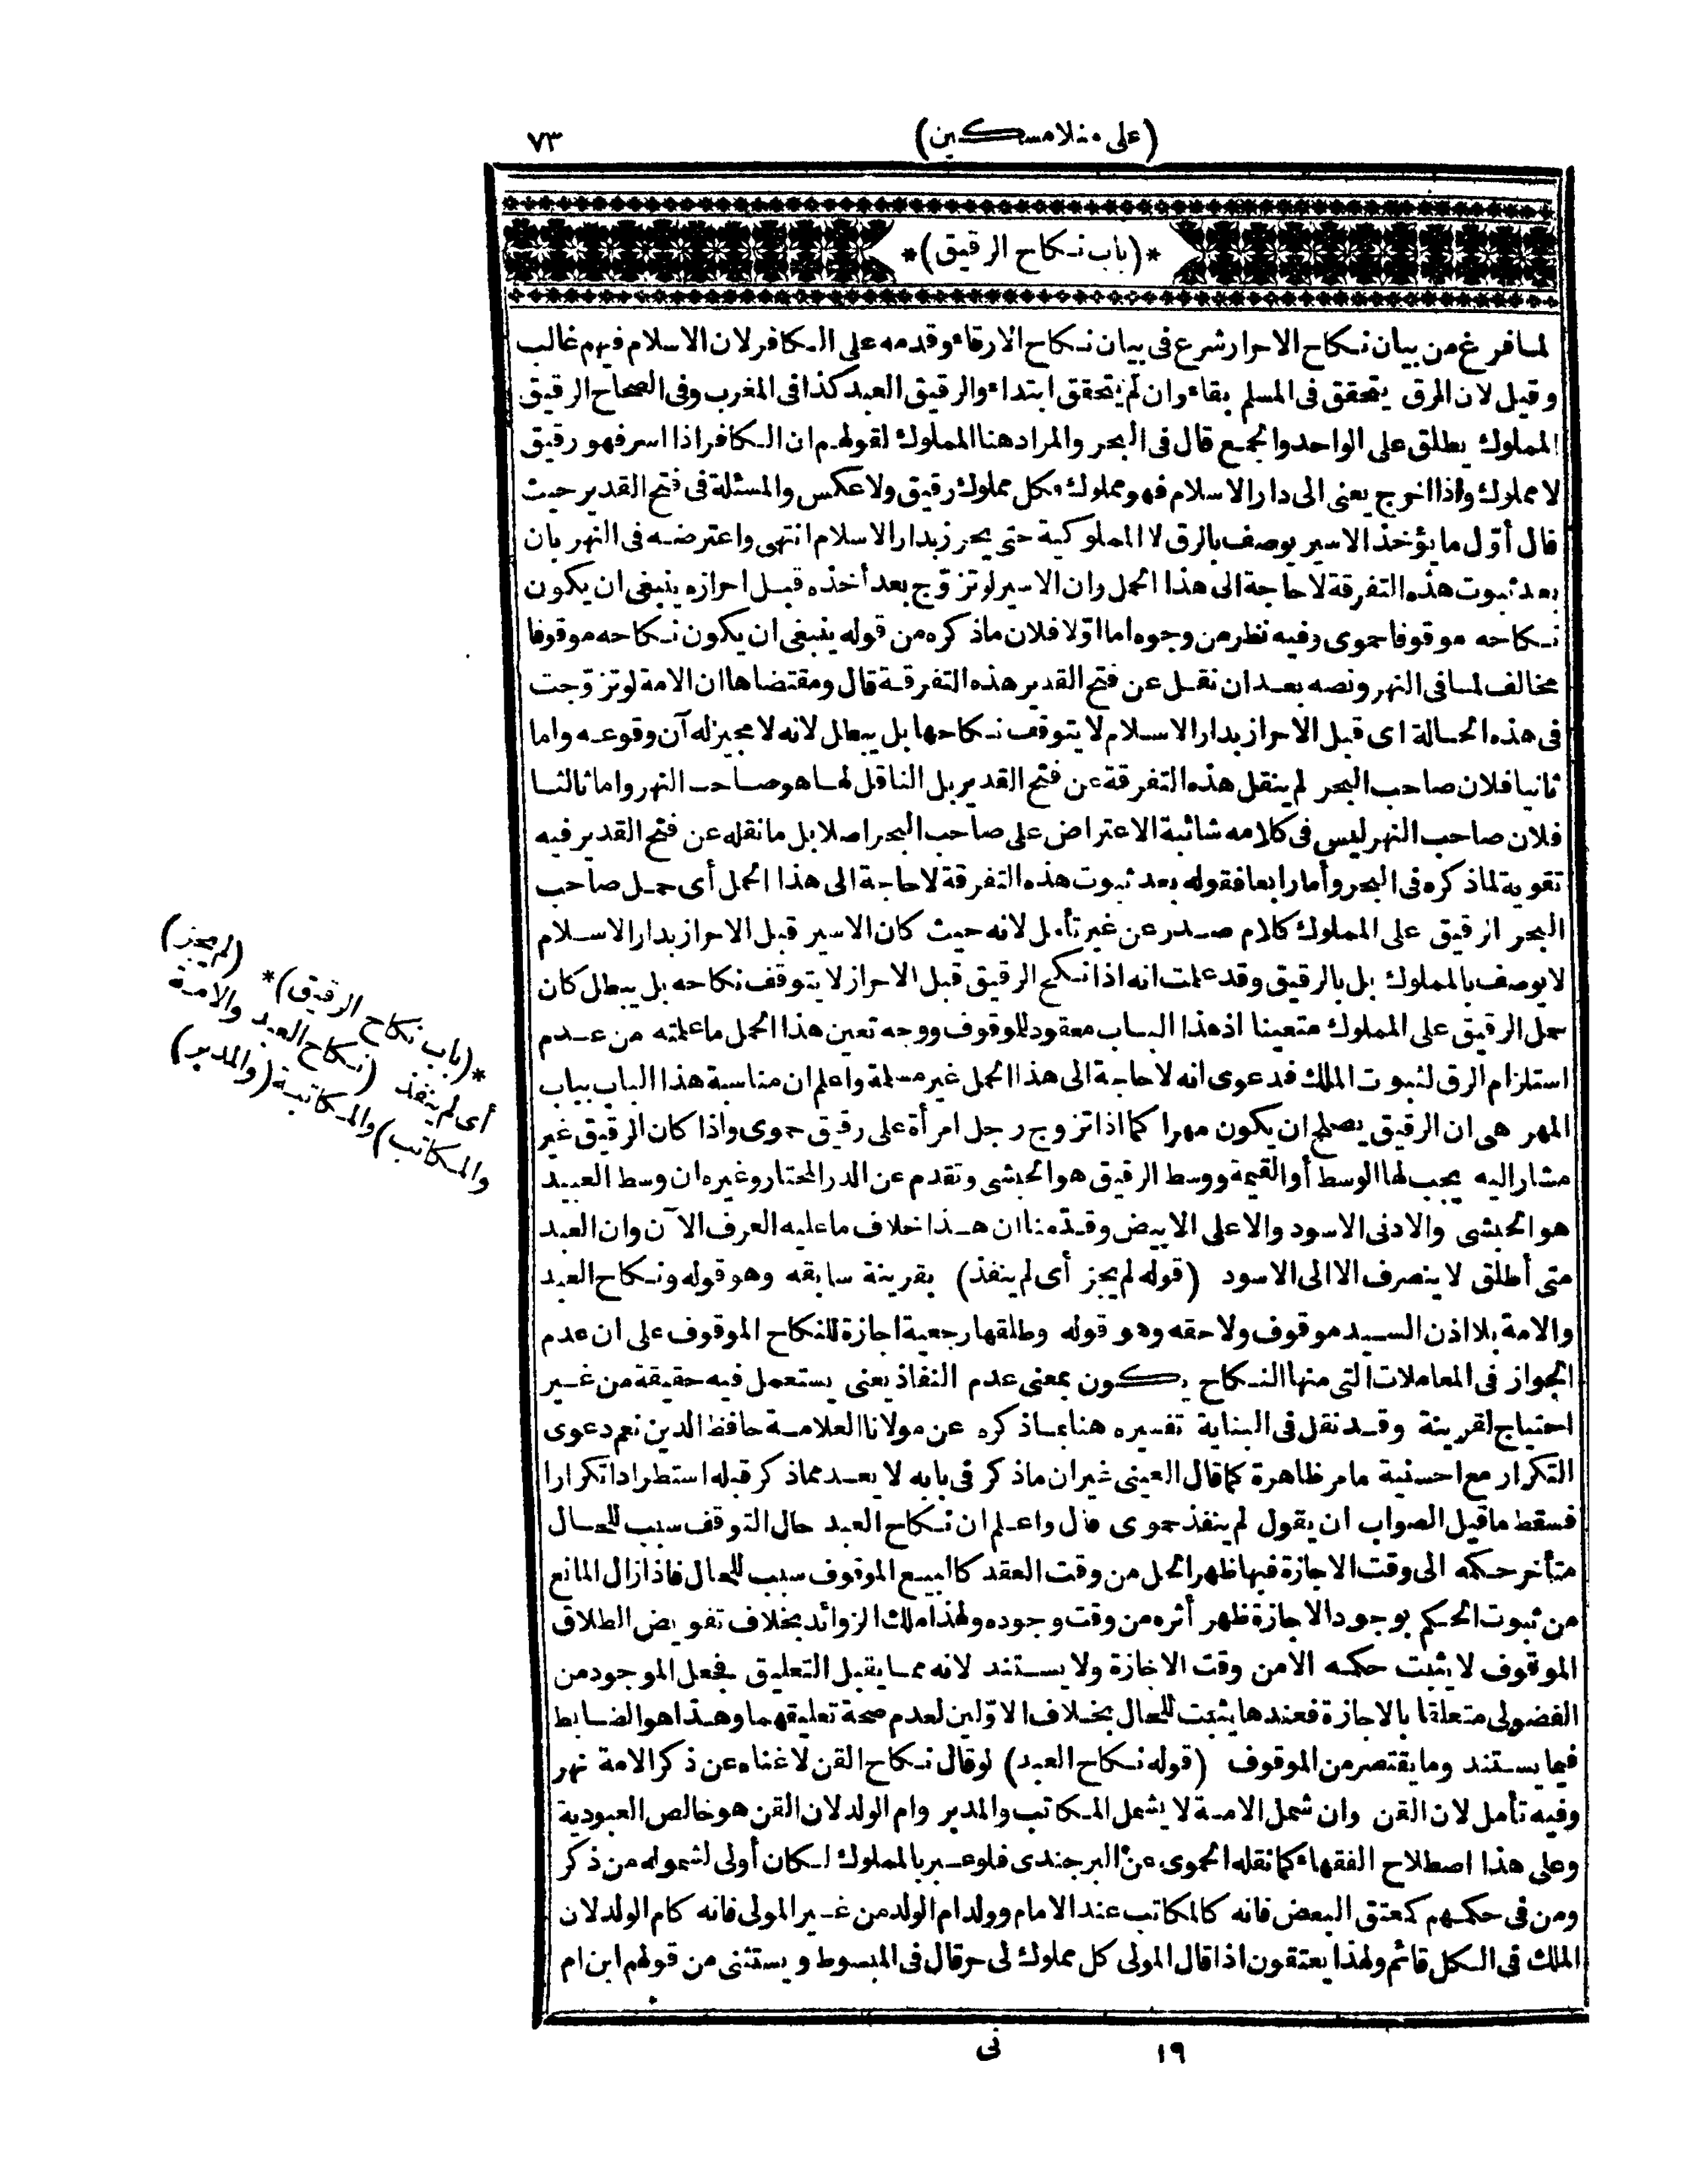 (على منلا مسكين)
٧٣
*(باب نكاح الرقيق)*
لما فرغ من بيان نكاح الاحرار شرع فى بيان نكاح الارقاء وقدمه على الكافر لان الاسلام فيهم غالب
وقيل لان الرق يتحقق فى المسلم بقاء وان لم يتحقق ابتداء والرقيق العبد كذا فى المغرب وفى الصحاح الرقيق
المملوك يطلق على الواحد والجمع قال فى البحر والمراد هنا المملوك لقولهم ان الكافر اذا اسر فهو رقيق
لا مملوك واذا اخرج يعنى الى دار الاسلام فهو مملوك فكل مملوك رقيق ولا عكس والمسئلة فى فتح القدير حيث
قال أوّل ما يؤخذ الاسير يوصف بالرق لا المملوكية حتى يحرز بدار الاسلام انتهى واعترضه فى النهر بان
بعد ثبوت هذه التفرقة لا حاجة الى هذا الحمل وان الاسير لو تزوّج بعد أخذه قبل احرازه ينبغى ان يكون
نكاحه موقوفا حموى وفيه نظر من وجوه اما اوّلا فلان ما ذكره من قوله ينبغى ان يكون نكاحه موقوفا
مخالف لما فى النهر ونصه بعد ان نقل عن فتح القدير هذه التفرقة قال ومقتضاها ان الامة لو تزوّجت
فى هذه الحالة اى قبل الاحراز بدار الاسلام لا يتوقف نكاحها بل يبطل لانه لا مجيز له آن وقوعه واما
ثانيا فلان صاحب البحر لم ينقل هذه التفرقة عن فتح القدير بل الناقل لها هو صاحب النهر واما ثالثا
فلان صاحب النهر ليس فى كلامه شائبة الاعتراض على صاحب البحر اصلا بل ما نقله عن فتح القدير فيه
تقوية لما ذكره فى البحر وأما رابعا فقوله بعد ثبوت هذه التفرقة لا حاجة الى هذا الحمل أى حمل صاحب
البحر الرقيق على المملوك كلام صدر عن غير تأمل لانه حيث كان الاسير قبل الاحراز بدار الاسلام
لا يوصف بالمملوك بل بالرقيق وقد علمت انه اذا نكح الرقيق قبل الاحراز لا يتوقف نكاحه بل يبطل كان
حمل الرقيق على المملوك متعينا اذ هذا الباب معقود للوقوف ووجه تعين هذا الحمل ما علمته من عدم
استلزام الرق لثبوت الملك فدعوى انه لا حاجة الى هذا الحمل غير مسلمة واعلم ان مناسبة هذا الباب بباب
المهر هى ان الرقيق يصلح ان يكون مهرا كما اذا تزوج رجل امرأة على رقيق حموى واذا كان الرقيق غير
مشار اليه يجب لها الوسط أو القيمة ووسط الرقيق هو الحبشى وتقدم عن الدر المختار وغيره ان وسط العبيد
هو الحبشى والادنى الاسود والاعلى الابيض وقدّمنا ان هذا خلاف ما عليه العرف الآن وان العبد
متى أطلق لا ينصرف الا الى الاسود (قوله لم يجز أى لم ينفذ) بقرينة سابقه وهو قوله ونكاح العبد
والامة بلا اذن السيد موقوف ولاحقه وهو قوله وطلقها رجعية اجازة للنكاح الموقوف على ان عدم
الجواز فى المعاملات التى منها النكاح يكون بمعنى عدم النفاذ يعنى يستعمل فيه حقيقة من غير
احتياج لقرينة وقد نقل فى البناية تفسيره هنا بما ذكره عن مولانا العلامة حافظ الدين نعم دعوى
التكرار مع احسنية ما مر ظاهرة كما قال العينى غير ان ما ذكر فى بابه لا يعد مما ذكر قبله استطرادا تكرارا
فسقط ما قيل الصواب ان يقول لم ينفذ حموى قال واعلم ان نكاح العبد حال التوقف سبب للحال
متأخر حكمه الى وقت الاجازة فبها ظهر الحل من وقت العقد كالبيع الموقوف سبب للحال فاذا زال المانع
من ثبوت الحكم بوجود الاجازة ظهر أثره من وقت وجوده ولهذا ملك الزوائد بخلاف تفويض الطلاق
الموقوف لا يثبت حكمه الا من وقت الاجازة ولا يستند لانه مما يقبل التعليق فجعل الموجود من
الفضولى متعلقا بالاجازة فعندها يثبت للحال بخلاف الاوّلين لعدم صحة تعليقهما وهذا هو الضابط
فيما يستند وما يقتصر من الموقوف (قوله نكاح العبد) لو قال نكاح القن لاغناه عن ذكر الامة نهر
وفيه تأمل لان القن وان شمل الامة لا يشمل المكاتب والمدبر وام الولد لان القن هو خالص العبودية
وعلى هذا اصطلاح الفقهاء كما نقله الحموى عن البرجندى فلو عبر بالمملوك لكان أولى لشموله من ذكر
ومن فى حكمهم كمعتق البعض فانه كالمكاتب عند الامام وولد ام الولد من غير المولى فانه كام الولد لان
الملك فى الكل قائم ولهذا يعتقون اذا قال المولى كل مملوك لى حر قال فى المبسوط ويستثنى من قولهم ابن ام
*(باب نكاح الرقيق)* (لم يجز)
أى لم ينفذ (نكاح العبد والامة
والمكاتب) والمكاتبة (والمدبر)
١٩
نى